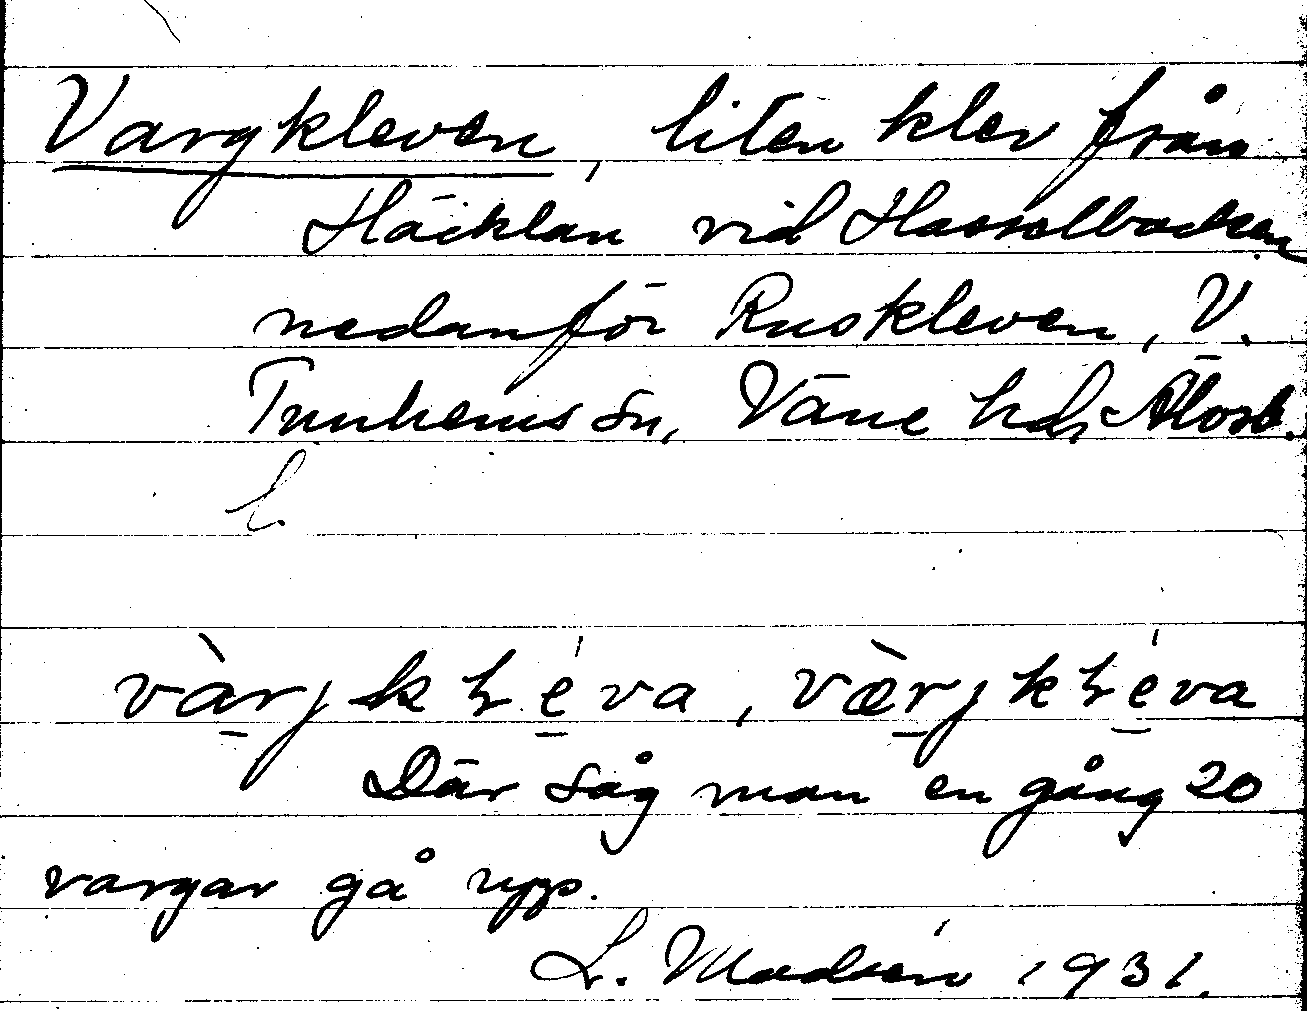 Vargkleven, liten klev från
Häcklan vid Hasselbacken
nedanför Ruskleven, V.
Tunhems sn, Väne hd, Älvsb.
L.
vàrjkɫéva, væ̀rjkɫéva
Där såg man en gång 20
vargar gå upp.
L. Modéen 1931.